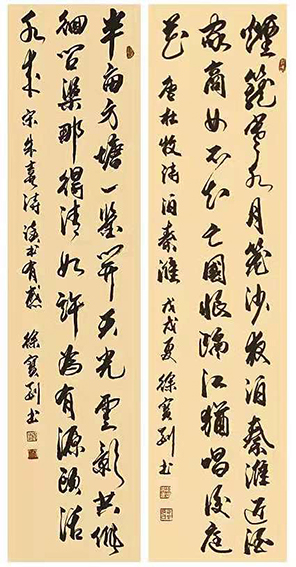 煙籠寒水月籠沙夜泊秦淮近酒
家商女不知亡國恨隔江猶唱後庭
花 唐杜牧詩泊秦淮 戊戌夏 徐寶 书
半畝方塘一鑒开天光雲影共徘
徊问渠那得清如許為有源頭活
水来 宋朱熹詩读书有感 徐寶 书